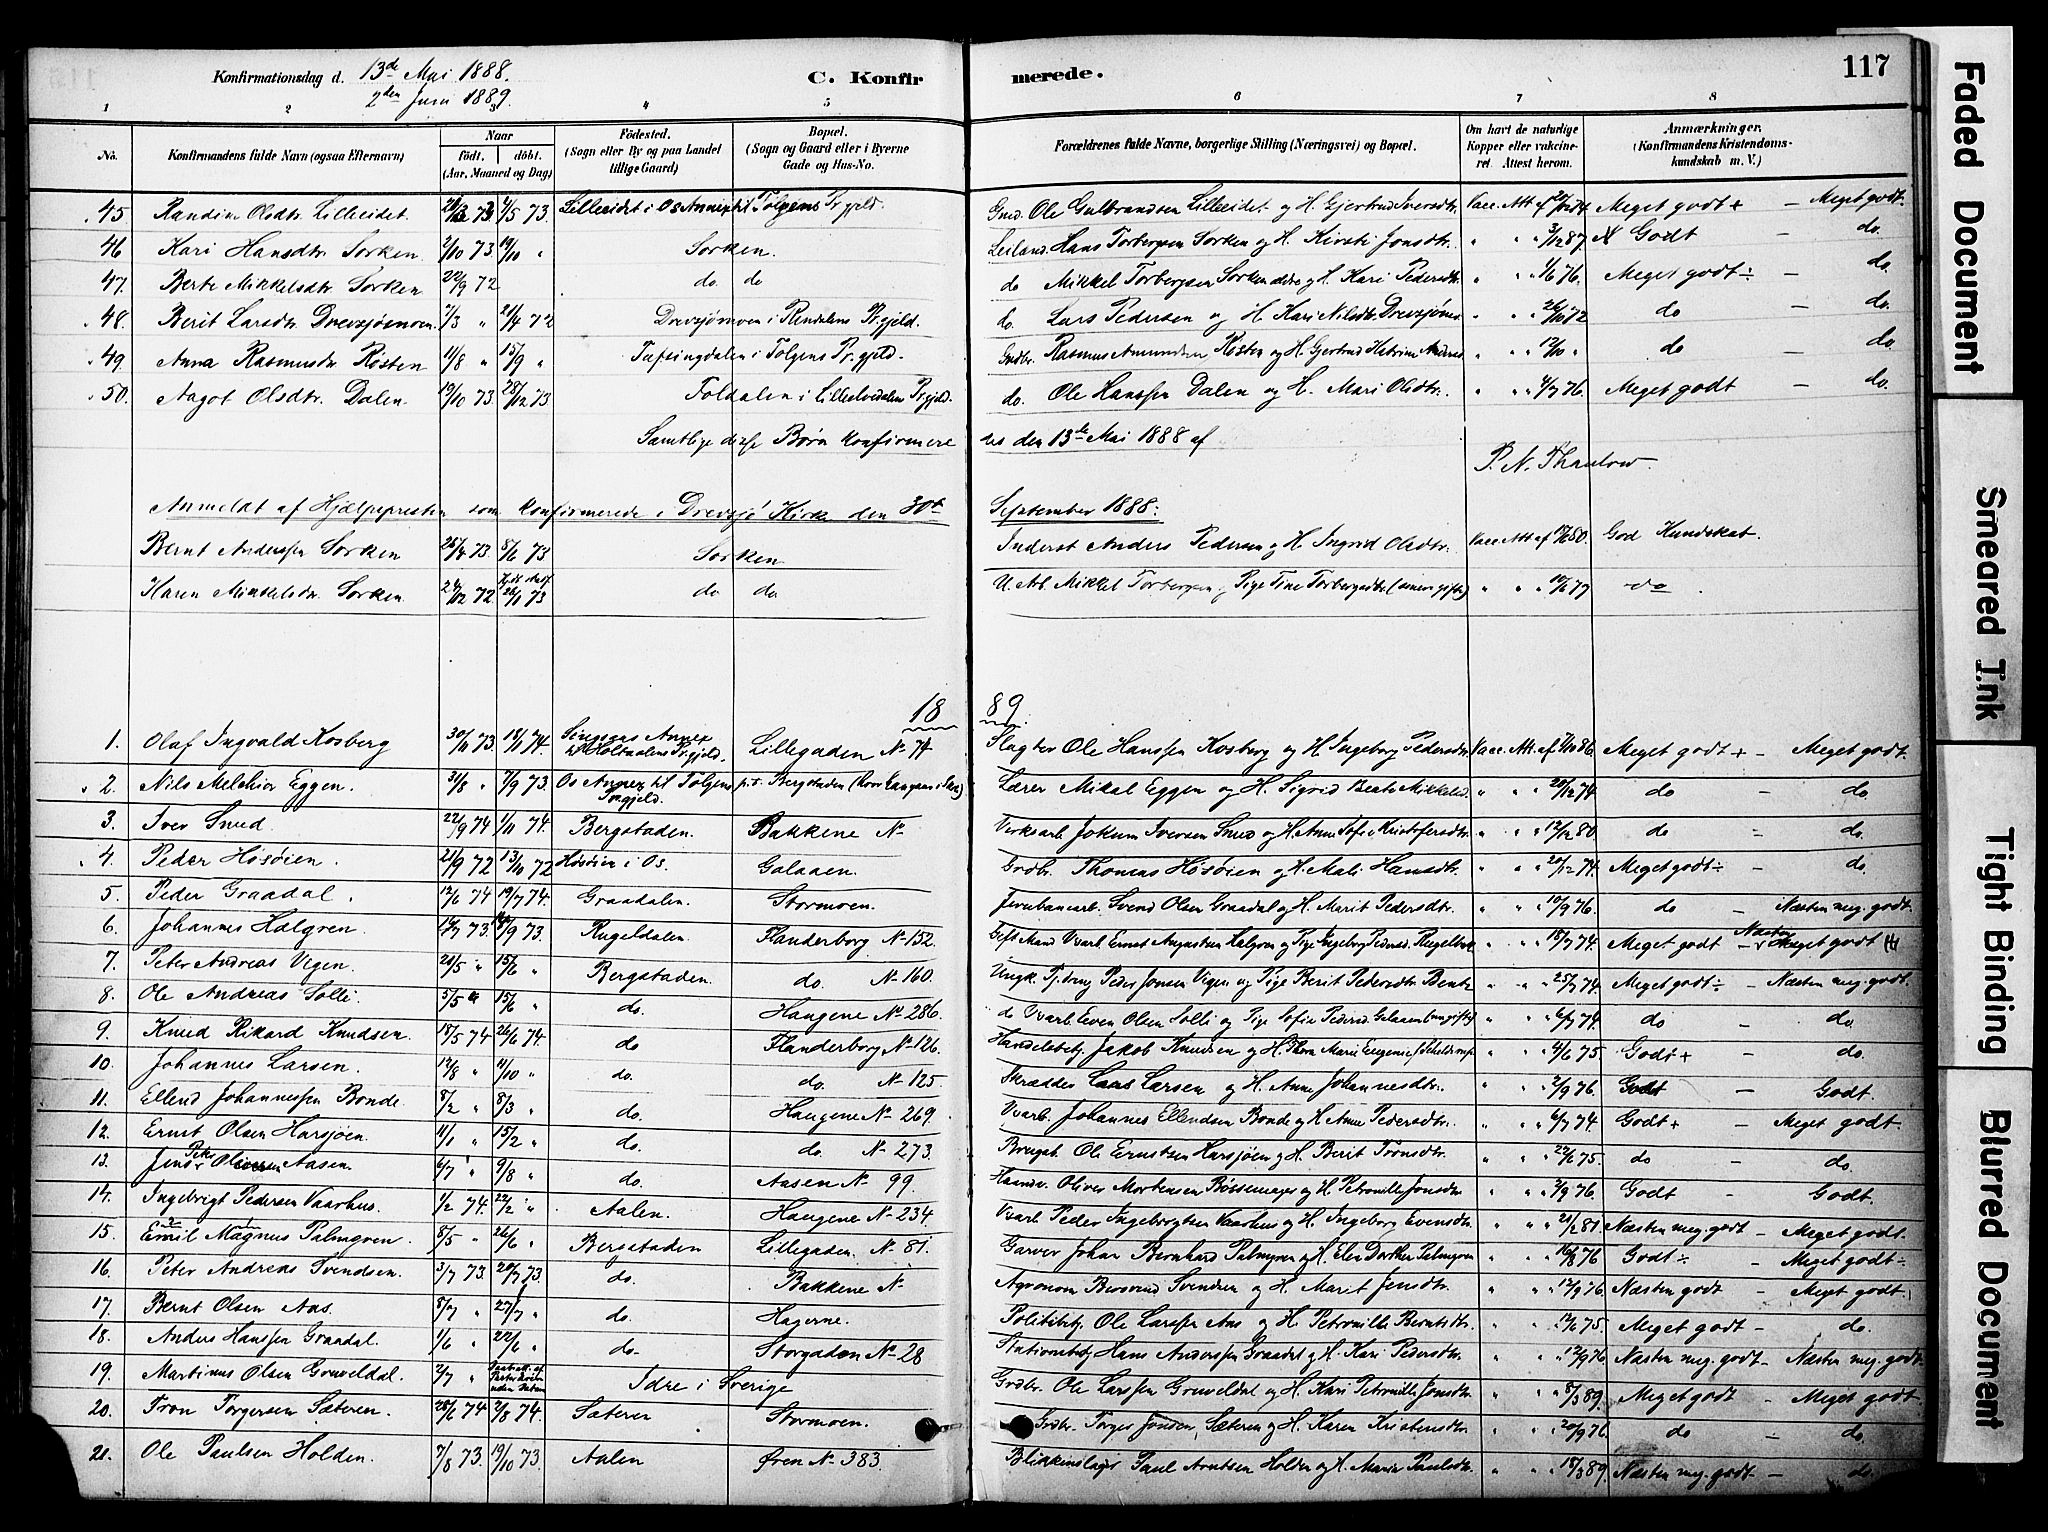 117
Konfirmationsdag d. 13de Mai 1888. C. Konfirmerede.
2den Juni 1889.
1 2 3 4 5 6 7 8
No. Konfirmandens fulde Navn (ogsaa Efternavn) Naar födt. döbt. (Aar, Maaned og Dag) Födested. (Sogn eller By og paa Landet tillige Gaard) Bopæl. (Sogn og Gaard eller i Byerne Gade og Hus-No. Forældrenes fulde Navne, borgerlige Stilling (Næringsvei) og Bopæl. Om havt de naturlige Kopper eller vakcineret. Attest herom. Anmærkninger. (Konfirmandens Kristendomskundskab m. V.)
45 Randine Olsdtr. Lilleeidet. 4/5 73 Lilleeidet i Os Annex til Tolgens Prgjeld. Gmd. Ole Gulbrandsen Lilleeidet og H. Gjertrud Iversdtr. Vacc. Att. af Meget godt + – Meget godt.
46 Kari Hansdtr. Sorken 2/10 73. 19/10 " Sorken. Leilænd. Hans Torbergsen Sorken og H. Kirsti Jonsdtr. " " 3/12 87. Godt – do.
47. Berte Mikkelsdtr. Sorken 22/9 72 do. do do Mikkel Torbergsen Sorken ældre og H. Kari Pedersdtr. " " 1/6 76. Meget godt ÷ – do.
48. Berit Larsdtr. Drevsjømoen. 7/3 " 21/4 72 Drevsjømoen i Rendalens Prgjeld. do. Lars Pedersen og H. Kari Nilsdtr. Drevsjømo " " 26/10 72 do – do.
49. Anna Rasmusdtr. Røsten 11/8 " 15/9 " Tufsingdalen i Tolgens Prgjeld. Grdbr. Rasmus Amundsen Røsten og H. Gjertrud Katrine Andersd " " 12/10 " do – do.
50. Aagot Olsdtr. Dalen. 19/10 73. 28/12 73 Foldalen i Lilleelvedalens Prgjeld. do. Ole Hanssen Dalen og H. Mari Olsdtr. " " 4/7 76. Meget godt – do.
Samtlige disse Børn konfirmeredes den 13de Mai 1888 af
P. N. Thaulow.
Anmeldt af Hjælpepresten som konfirmerede i Drevsjø Kirke den 30te September 1888:
Bernt Anderssen Sorken 26/4 73. 8/6 73 Sorken Inderst Anders Pedersen og H. Ingrid Olsdtr. Vacc. Att. af God Kundskab.
Karen Mikkelsdtr. Sorken. 72. 26/1 73 do do U. Arb. Mikkel Torbergsen, Pige Tine Torbergsdtr. " " 77 do
1889.
1. Olaf Ingvald Kosberg 30/11 73. 18/1 74. Singsaas Annex til Holtaalens Prgjeld. Lillegaden No 74 Slagter Ole Hanssen Kosberg og H. Ingeborg Pedersdtr. Vacc. Att. af 86. Meget godt + – Meget godt.
2. Nils Melchior Eggen. 31/8 " 7/9 73. Os Annex til Tolgens Prgjeld. p.t. Bergstaden Lærer Mikal Eggen og H. Sigrid Beate Mikkelsd. " " 28/12 74 do – do.
3. Iver Smed. 22/9 74 1/11 74. Bergstaden. Bakkene No Virksarb. Jokum Iversen Smed og H. Anne Sofie Kristofersdtr. " " 12/12 80 do – do.
4. Peder Høsøien. 21/9 72 13/10 72 Høsøien i Os. Galaaen. Grdbr. Thomas Høsøien og H. Mali Hansdtr. " " 20/12 74. Meget godt ÷ – do.
5. Peder Graadal. 12/6 74 19/7 74. Graadalen. Stormoen. Jernbanearb. Svend Olsen Graadal og H. Marit Pedersdtr. " " 10/9 76. do – Næsten meg. godt.
6. Johannes Halgren. 73. /9 73. Rugeldalen. Flanderborg No 152. Gift Mand Varb. Ernst Augustsen Halgren og Pige Ingeborg Pedersd. " " 18/7 74. Meget godt – Næsten Meget godt (+)
7. Peter Andreas Vigen. 20/5 " 15/6 " Bergstaden. do. No 160. Ungk. Peder Jonsen Vigen og Pige Berit Pedersdtr. " " 25/7 74. Meget godt ÷ – Næsten meg. godt.
8. Ole Andreas Solli. 5/5 " 15/6 " do. Haugene No 286. do Varb. Even Olsen Solli og Pige Sofie Pedersd. Galaaen " " 6/7 74. do – do.
9. Knud Rikard Knudsen. 18/5 74 26/6 74. do Flanderborg No 126. Handelsbetj. Jakob Knudsen og H. Thora Marie Eugenie " " 4/6 75. Godt + – do.
10. Johannes Larsen. 12/8 " 11/10 " do. do. No 125. Skrædder Lars Larsen og H. Anne Johannesdtr. " " 2/9 76. Godt – Godt.
11. Ellend Johannessen Bonde. 8/2 " 8/3 " do. Haugene No 269. Varb. Johannes Ellendsen Bonde og H. Anne Pedersdtr. " " 6/7 74. Godt + – Meget godt.
12. Ernst Olsen Harsjøen. 11/1 " 15/2 " do. do. No 273. Brugsb. Ole Ernstsen Harsjøen og H. Berit Tronsdtr. " " 22/6 75. do – do.
13. Jens Peter Oliversen Aasen. 6/7 " 9/8 " do. Aasen No 99. Haandv. Oliver Mortensen Bøssemager og H. Petronille Jonsdtr. " " 2/9 76. Godt – Godt.
14. Ingebrigt Pedersen Vaarhus. 1/2 74. 22/2 " Aalen. Haugene No 234. Varb. Peder Ingebrigtsen Vaarhus og H. Ingeborg Evensdtr. " " 21/2 81. Næsten meg. godt – Meget godt.
15. Emil Magnus Palmgren. 8/5 " 26/6 " Bergstaden Lillegaden. No 81. Garver Johan Bernhard Palmgren og H. Elen Dorthea Palmgren " " 76 Godt ÷ – Meget godt ÷
16. Peter Andreas Svendsen. 3/7 73. 20/7 73. do. Bakkene No Agronom Svendsen og H. Marit Jensdtr. " " 12/9 76 Næsten godt – Meget godt.
17. Bernt Olsen Aas. 8/7 " 27/7 " do. Hagerne. Politibetj. Ole Larssen Aas og H. Petronille Berntsdtr. " " 12/6 75. Meget godt – do.
18. Anders Hanssen Graadal. 1/6 " 22/6 " do. Storgaden No 28 Stationsbetj. Hans Anderssen Graadal og H. Kari Pedersdtr. " " 12/9 76 Næsten meg. godt – Næsten meg. godt.
19. Martinus Olsen Gruveldal. 2/7 " Idre i Sverige Grdbr. Ole Larssen Gruveldal og H. Kari Petronille Jonsdtr. " " 8/3 89. Meget godt – Meget godt.
20. Tron Torgersen Sæteren. 28/6 74 2/8 74. Sæteren Stormoen. Grdbr. Torger Jonsen Sæteren og H. Karen Kristensdtr. " " 20/9 76. do – do.
21. Ole Paulsen Holden. 7/8 73. 19/10 73. Aalen Øren No 383. Blikkenslager Paul Arntsen Holden og H. Marie Paulsdtr. " " 18/3 89. Næsten meg. godt – do.
Faded Document
Smeared Ink
Tight Binding
Blurred Document